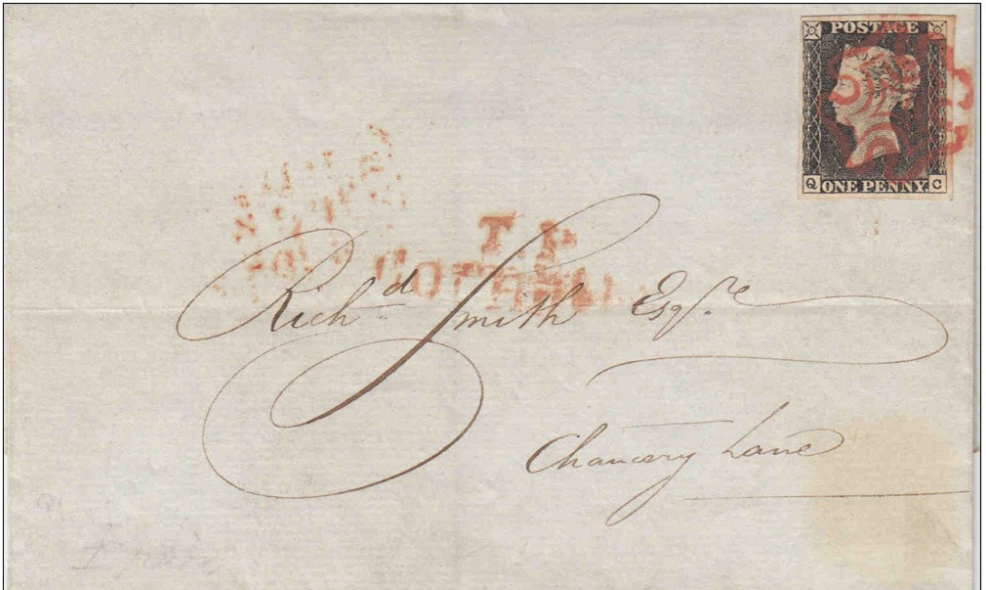 POSTAGE
Q ONE PENNY C
T.P
Rich.d Smith Esq.re
Chancery Lane